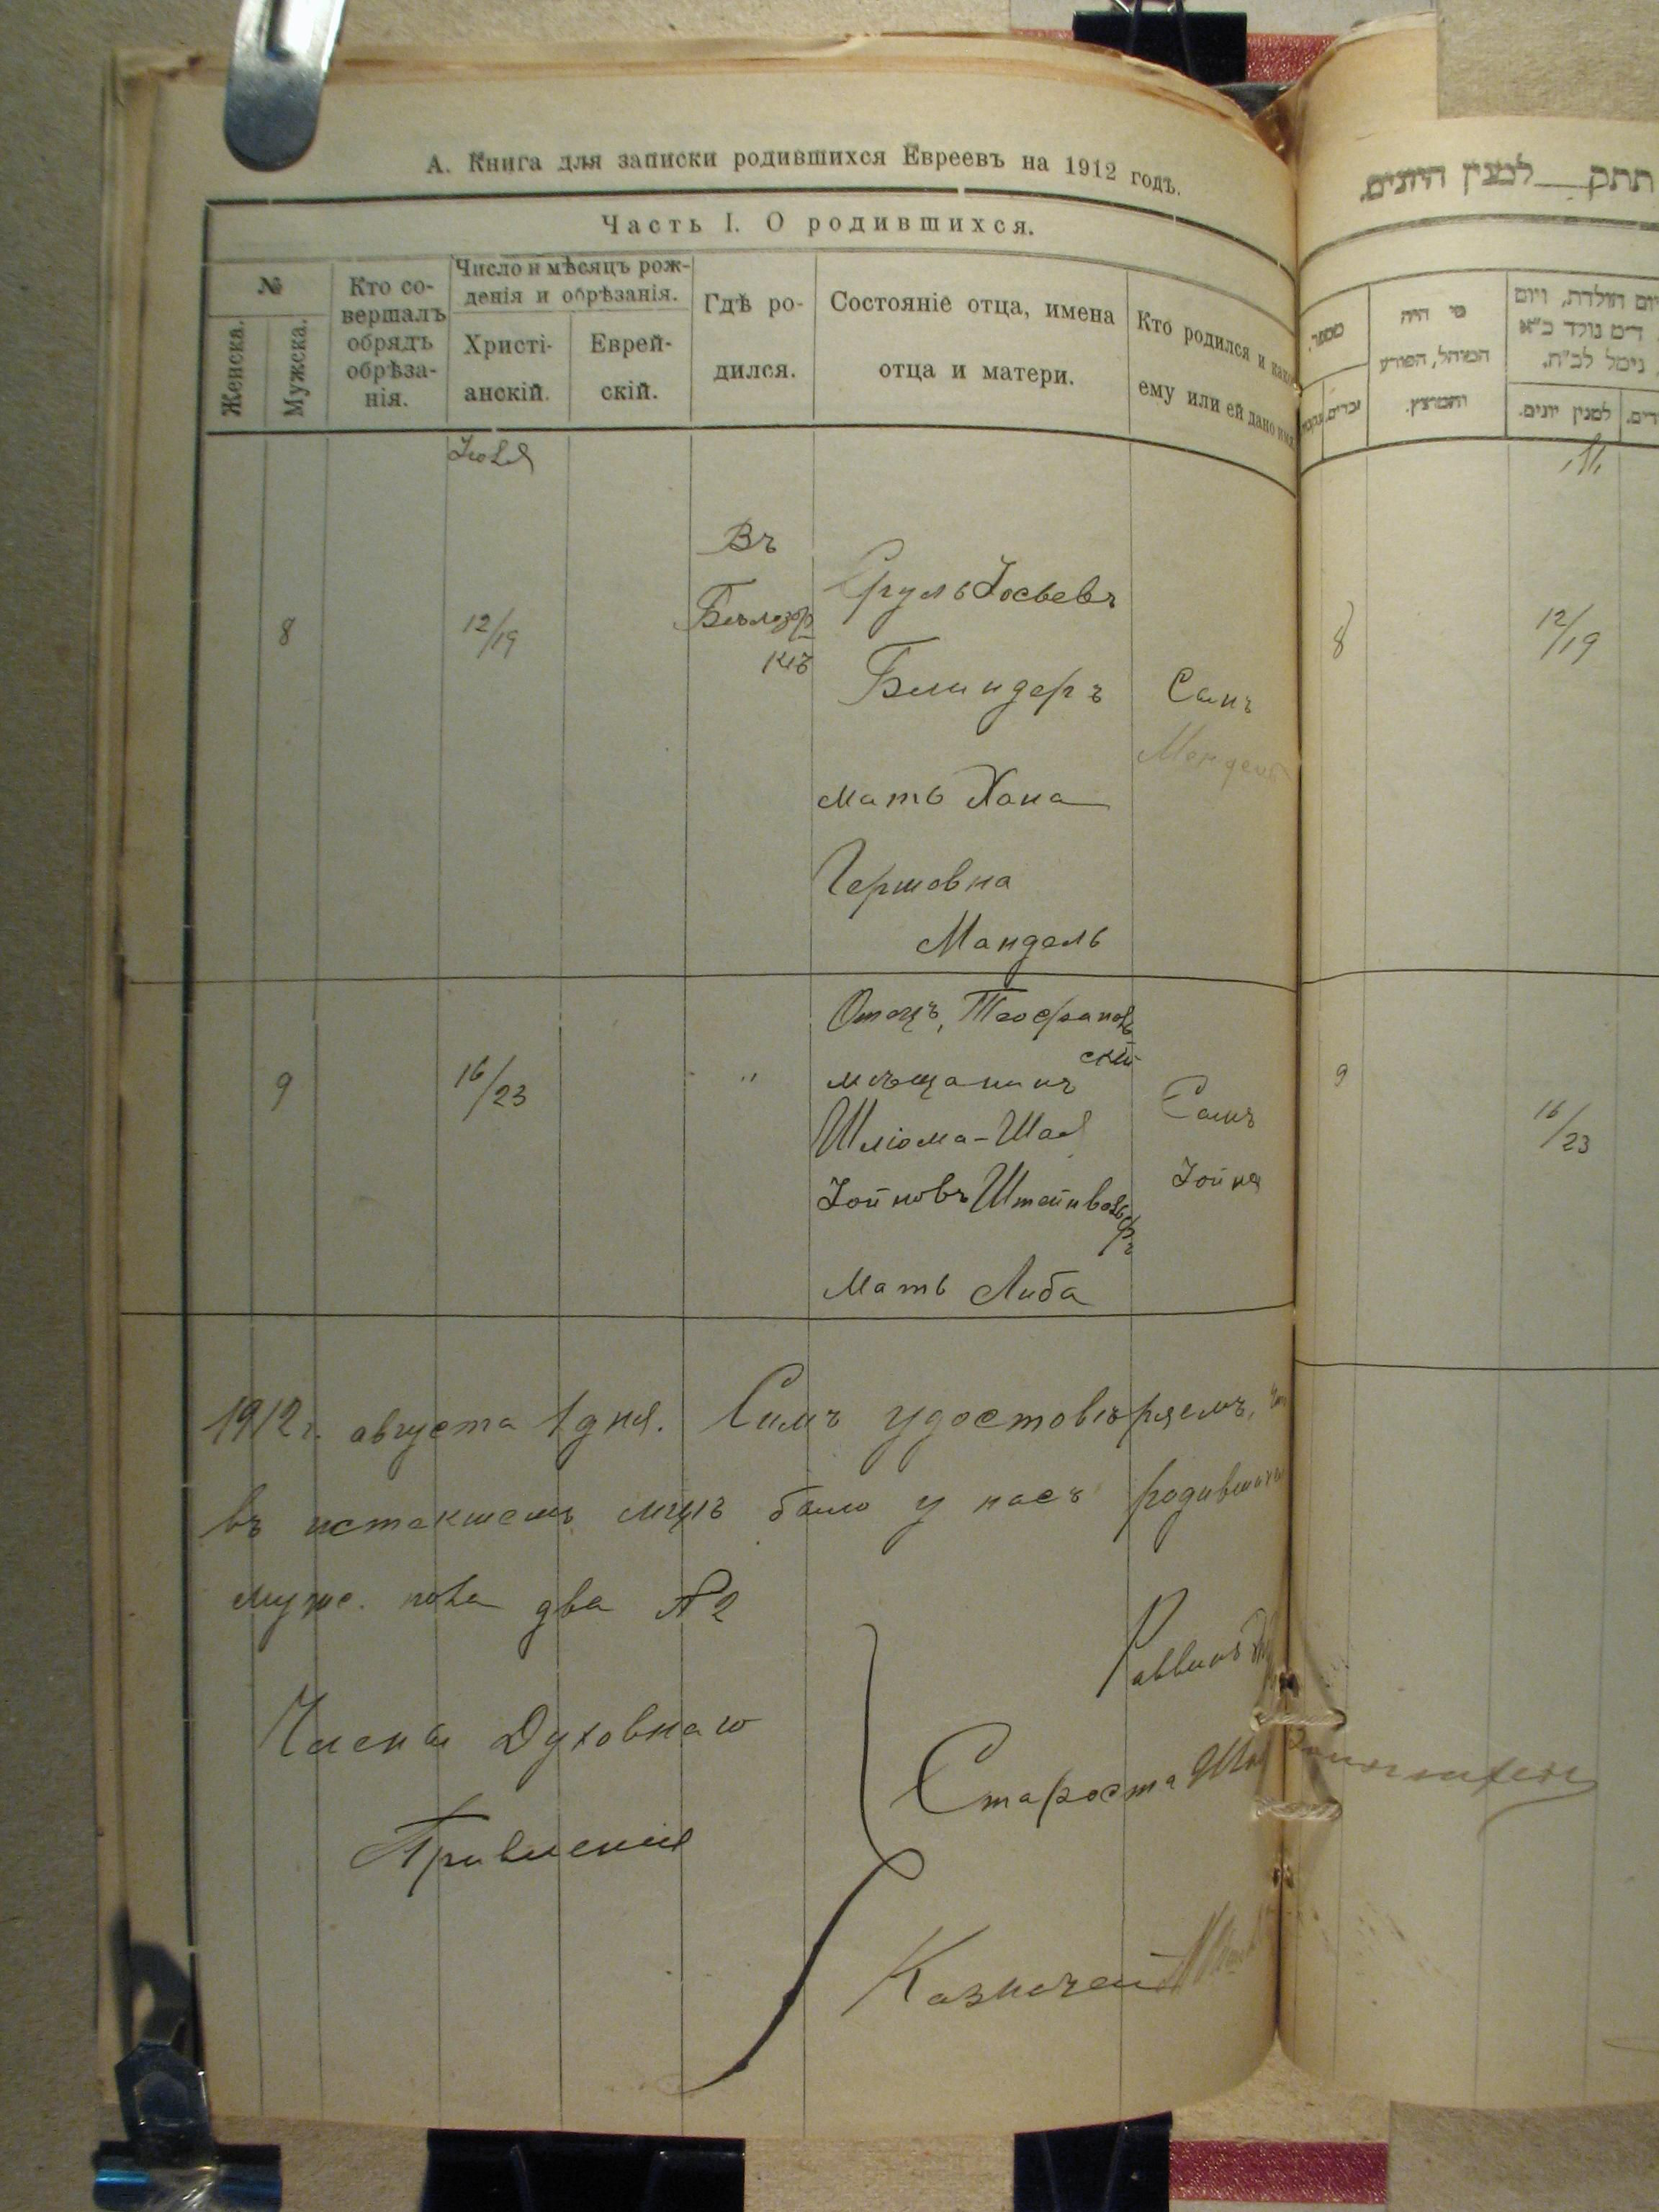 А. Книга для записки родившихся Евреевъ на 1912 годъ.
Часть I. О родившихся.
№
Женска.
Мужска.
Кто со-
вершалъ
обрядъ
обрѣза-
нія.
Число и мѣсяцъ рож-
денія и обрѣзанія.
Христі-
анскій.
Еврей-
скій.
Гдѣ ро-
дился.
Состояніе отца, имена
отца и матери.
Кто родился и како
ему или ей дано имя
Іюля
8
12/19
Въ
Бѣлозор
кѣ
Сруль Іосьевъ
Блиндеръ
мать Хана
Гершовна
Мандель
Сынъ
Мендель
9
16/23
"
Отецъ, Теофиполь
скій
мѣщанинъ
Шлёма-Шая
Іойновъ Штейнвольфъ
Мать Либа
Сынъ
Іойня
1912 г. августа 1 дня. Симъ удостовѣряемъ,
въ истекшемъ мцѣ было у насъ родившихся
муже. пола два № 2
Раввинъ
Члены Духовнаго
Правленія
Староста
Казначей
תתק___למנין היונים.
מספר.
זכרים.
מי היה
המוהל, הפורע
והמוצץ.
יום הולדת, ויום
נימל לב״ה.
למנין יונים.
8
12/19
9
16/23